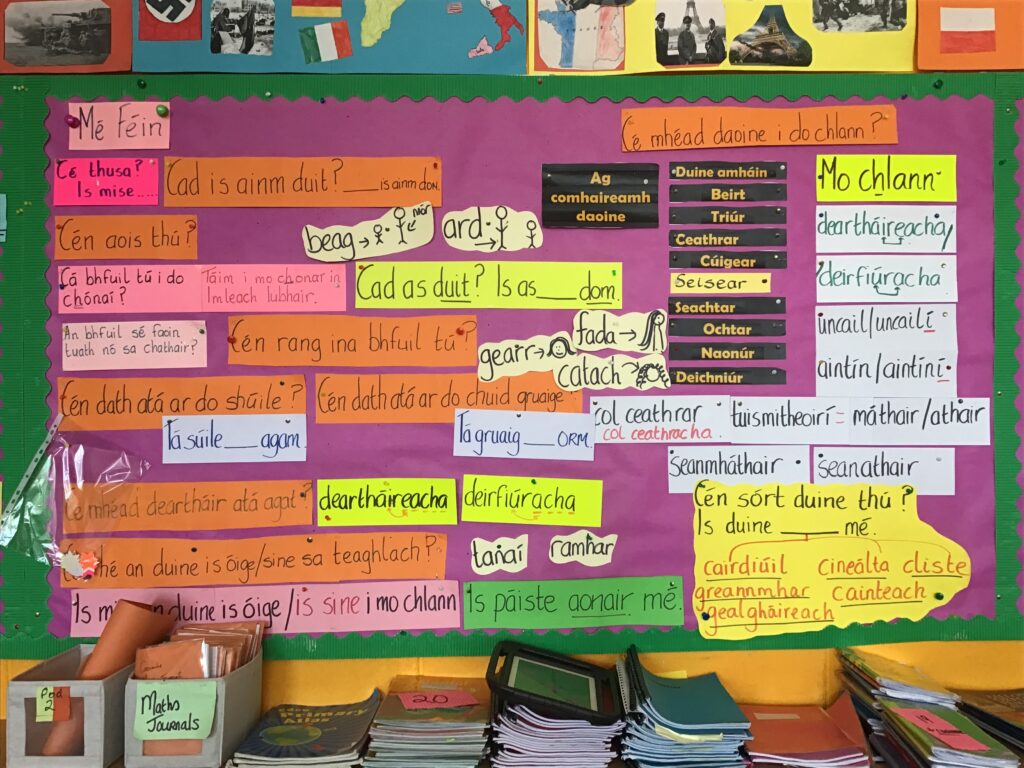 Mé Féin
Cé thusa?
Is mise.....
Cad is ainm duit? ____ is ainm dom.
Cén aois thú?
beag
mór
ard
Cá bhfuil tú i do
chónaí?
Táim i mo chónaí in
Imleach Iubhair.
Cad as duit? Is as ____ dom.
An bhfuil sé faoin
tuath nó sa chathair?
Cén rang ina bhfuil tú?
gearr
fada
catach
Cén dath atá ar do shúile?
Tá súile ____ agam.
Cén dath atá ar do chuid gruaige?
Tá gruaig ____ ORM.
Cé mhéad deartháir atá agat?
deartháireacha
deirfiúracha
an duine is óige/sine sa teaghlach?
tanaí
ramhar
an duine is óige/is sine i mo chlann
Is páiste aonair mé.
Cé mhéad daoine i do chlann?
Ag
comhaireamh
daoine
Duine amháin
Beirt
Triúr
Ceathrar
Cúigear
Seisear
Seachtar
Ochtar
Naonúr
Deichniúr
Mo chlann
deartháireacha
deirfiúracha
uncail/uncailí
aintín/aintíní
col ceathrar
col ceathracha
tuismitheoirí = máthair/athair
seanmháthair
seanathair
Cén sórt duine thú?
Is duine ____ mé.
cairdiúil
cineálta
cliste
greannmhar
cainteach
gealgháireach
Maths
Journals
Primary
Atlas
20